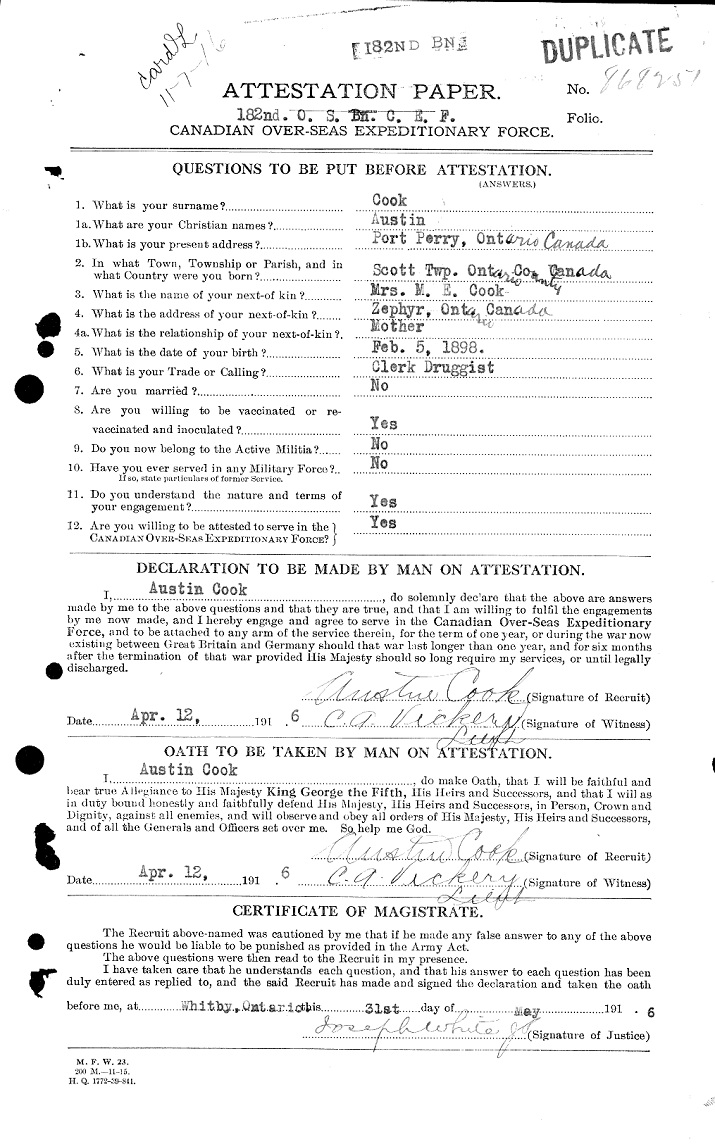 Card L
11-7-16
[182ND BN]
DUPLICATE
ATTESTATION PAPER.
No. 868251
182nd. O. S. Bn. C. E. F.
Folio.
CANADIAN OVER-SEAS EXPEDITIONARY FORCE.
QUESTIONS TO BE PUT BEFORE ATTESTATION.
(ANSWERS.)
1. What is your surname? Cook
1a. What are your Christian names? Austin
1b. What is your present address? Port Perry, Ontario Canada
2. In what Town, Township or Parish, and in
what Country were you born? Scott Twp. Ontario County Canada
3. What is the name of your next-of kin? Mrs. M. E. Cook
4. What is the address of your next-of-kin? Zephyr, Ontario Canada
4a. What is the relationship of your next-of-kin? Mother
5. What is the date of your birth? Feb. 5, 1898.
6. What is your Trade or Calling? Clerk Druggist
7. Are you married? No
8. Are you willing to be vaccinated or re-
vaccinated and inoculated? Yes
9. Do you now belong to the Active Militia? No
10. Have you ever served in any Military Force? No
If so, state particulars of former Service.
11. Do you understand the nature and terms of
your engagement? Yes
12. Are you willing to be attested to serve in the Yes
CANADIAN OVER-SEAS EXPEDITIONARY FORCE?
DECLARATION TO BE MADE BY MAN ON ATTESTATION.
I, Austin Cook, do solemnly declare that the above are answers
made by me to the above questions and that they are true, and that I am willing to fulfil the engagements
by me now made, and I hereby engage and agree to serve in the Canadian Over-Seas Expeditionary
Force, and to be attached to any arm of the service therein, for the term of one year, or during the war now
existing between Great Britain and Germany should that war last longer than one year, and for six months
after the termination of that war provided His Majesty should so long require my services, or until legally
discharged.
Austin Cook (Signature of Recruit)
Date Apr. 12, 191 .6 C. A. Vickery (Signature of Witness)
Lieut
OATH TO BE TAKEN BY MAN ON ATTESTATION.
I, Austin Cook, do make Oath, that I will be faithful and
bear true Allegiance to His Majesty King George the Fifth, His Heirs and Successors, and that I will as
in duty bound honestly and faithfully defend His Majesty, His Heirs and Successors, in Person, Crown and
Dignity, against all enemies, and will observe and obey all orders of His Majesty, His Heirs and Successors,
and of all the Generals and Officers set over me. So help me God.
Austin Cook (Signature of Recruit)
Date Apr. 12, 191 .6 C. A. Vickery (Signature of Witness)
Lieut
CERTIFICATE OF MAGISTRATE.
The Recruit above-named was cautioned by me that if he made any false answer to any of the above
questions he would be liable to be punished as provided in the Army Act.
The above questions were then read to the Recruit in my presence.
I have taken care that he understands each question, and that his answer to each question has been
duly entered as replied to, and the said Recruit has made and signed the declaration and taken the oath
before me, at Whitby, Ontario this 31st day of May 191 . 6
Joseph White J.P. (Signature of Justice)
M. F. W. 23.
200 M.—11-15.
H. Q. 1772-39-841.